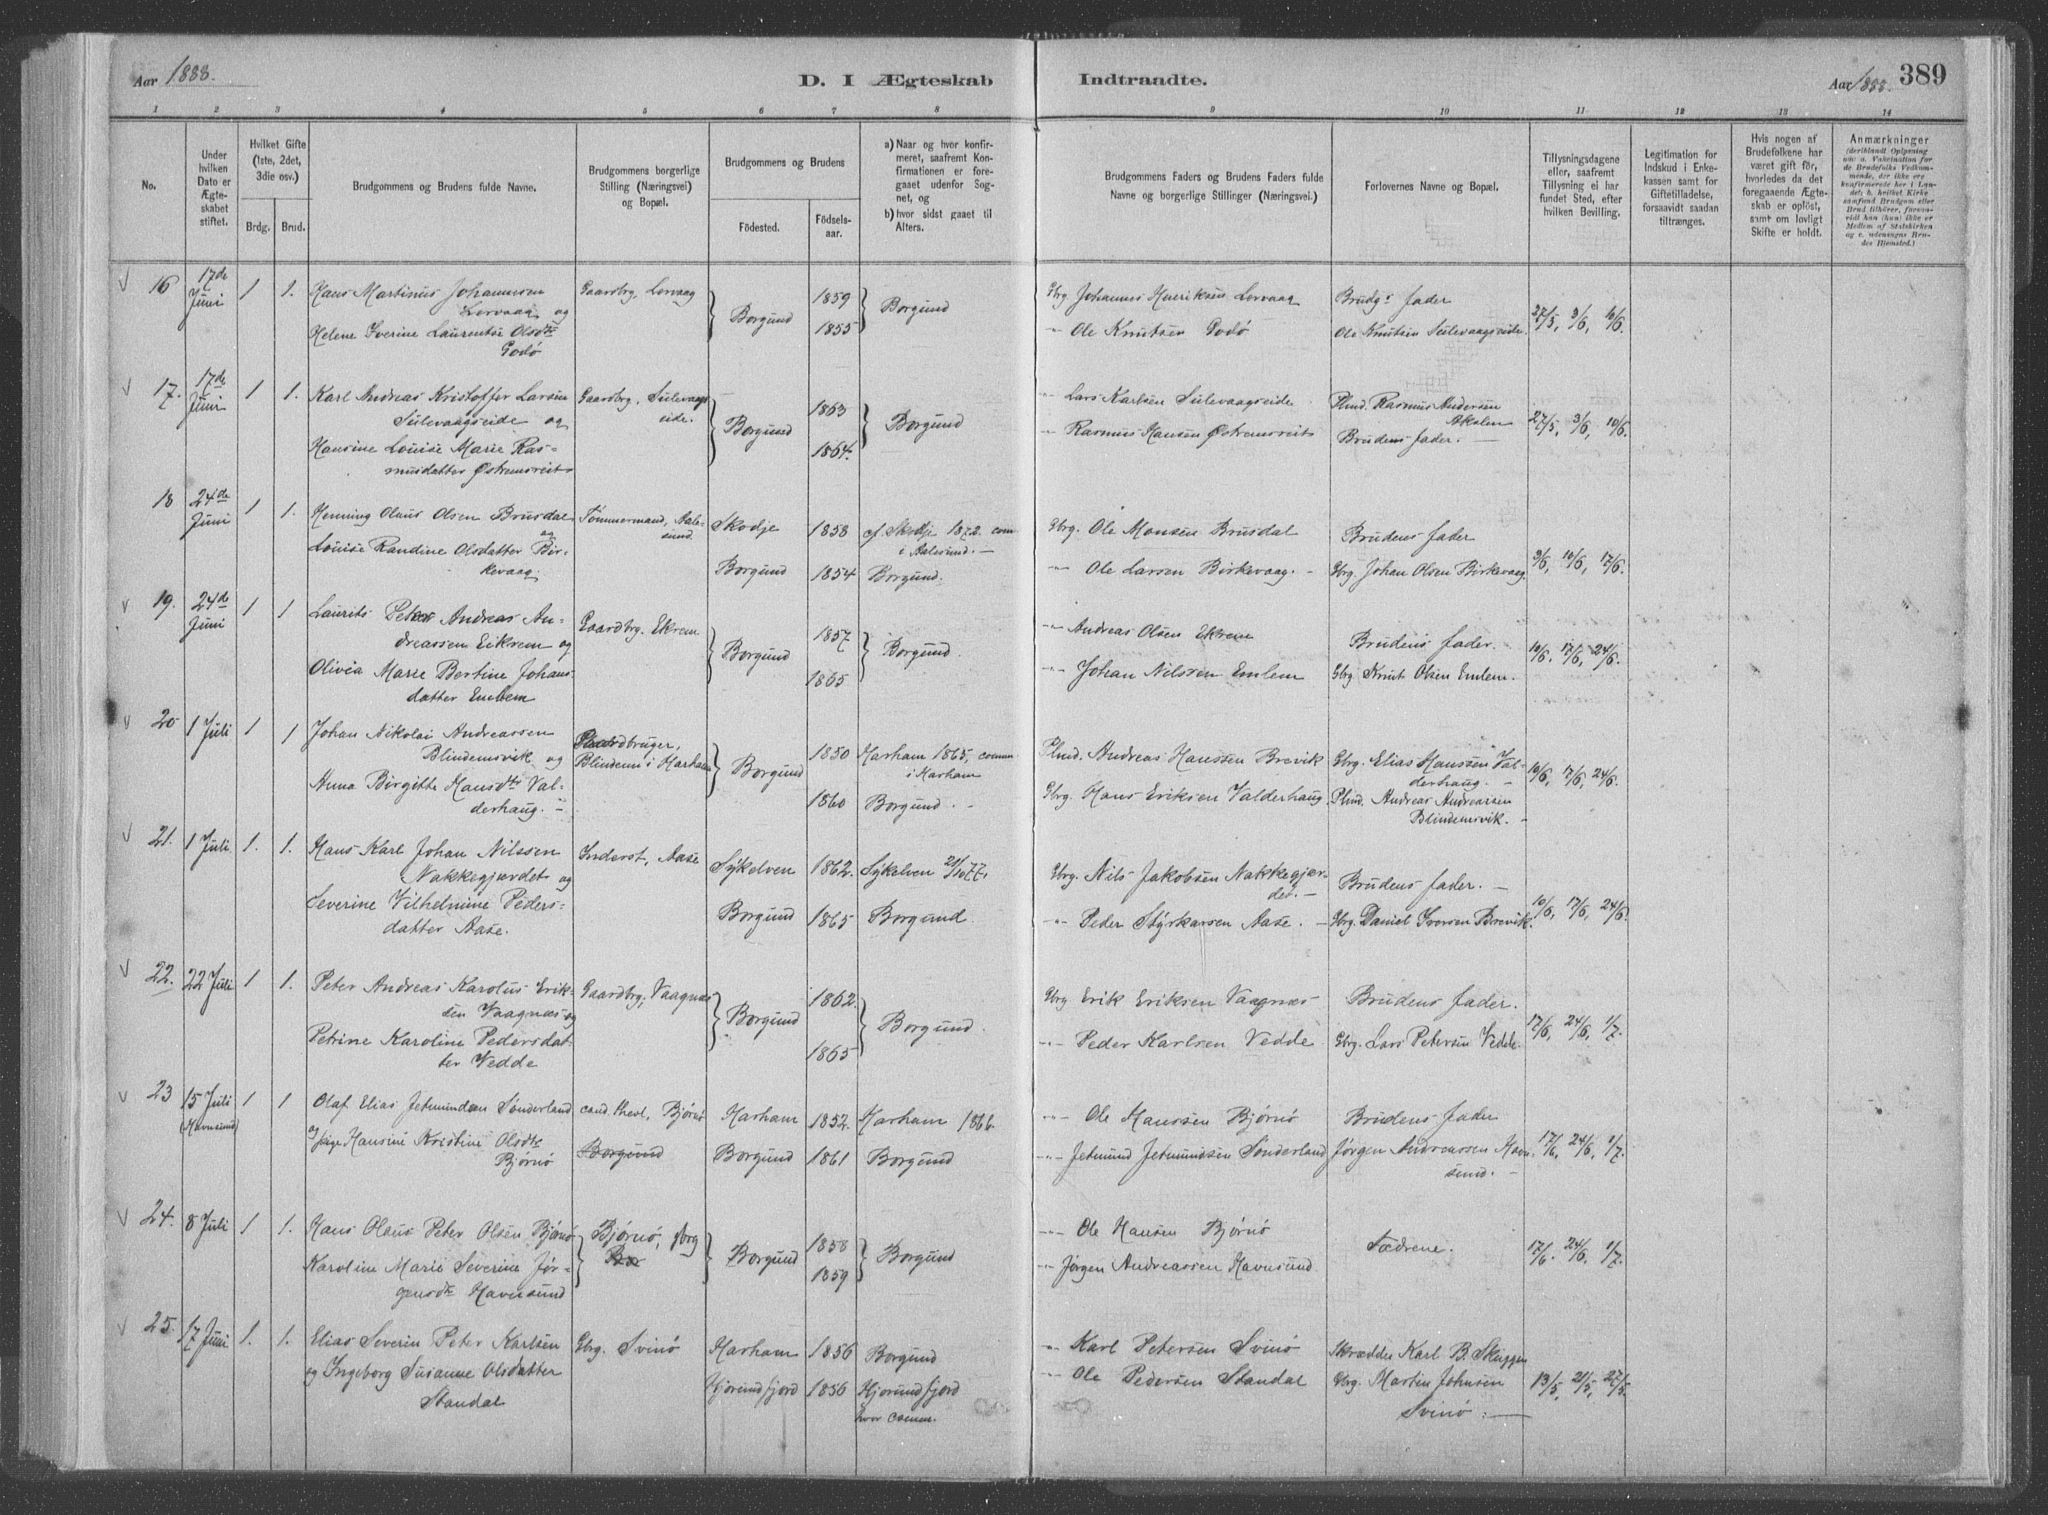 Aar 1888.
D. I Ægteskab Indtraadte.
Aar 1888. 389
1 2 3 4 5 6 7 8 9 10 11 12 13 14
No.
Under hvilken Dato er Ægteskabet stiftet.
Hvilket Gifte (1ste, 2det, 3die osv.)
Brdg. Brud.
Brudgommens og Brudens fulde Navne.
Brudgommens borgerlige Stilling (Næringsvei) og Bopæl.
Brudgommens og Brudens
Födested.
Födsels-aar.
a) Naar og hvor konfirmeret, saafremt Konfirmationen er foregaaet udenfor Sognet, og
b) hvor sidst gaaet til Alters.
Brudgommens Faders og Brudens Faders fulde Navne og borgerlige Stillinger (Næringsvei.)
Forlovernes Navne og Bopæl.
Tillysningsdagene eller, saafremt Tillysning ei har fundet Sted, efter hvilken Bevilling.
Legitimation for Indskud i Enkekassen samt for Giftetilladelse, forsaavidt saadan tiltrænges.
Hvis nogen af Brudefolkene har været gift för, hvorledes da det foregaaende Ægteskab er oplöst, samt om lovligt Skifte er holdt.
Anmærkninger
16 17de Juni 1 1. Hans Martinus Johannesen Gaardbrg, Lervaag 1859 Gbrg Johannes Henriksen Lervaag Brudgs Fader
Lervaag og Borgund Borgund 27/5, 3/6, 10/6.
Helene Iverine Laurentse Olsdtr 1855 -"- Ole Knutsen Godø Ole Knutsen Sulevaagseide
Godø
17. 17de Juni 1 1. Karl Andreas Kristoffer Larsen Gaardbrg, Sulevaags 1863 -"- Lars Karlsen Sulevaagseide Plmd. Rasmus Andersen
Sulevaagseide og eide. Borgund Borgund 27/5, 3/6, 10/6.
Hansine Louise Marie Ras- 1864. -"- Rasmus Hansen Østremsreits Brudens Fader. -
musdatter Østremsreits
18 24de Juni 1 1. Henning Olaus Olsen Brusdal Tømmermand, Aale- Skodje 1858 cf. Skodje 1872 com Gbrg. Ole Monsen Brusdal Brudens Fader
og sund i Aalesund. -
Louise Randine Olsdatter Bir- Borgund 1854 Borgund. -"- Ole Larsen Birkevaag. - Gbrg. Johan Olsen Birkevaag 3/6, 10/6, 17/6.
kevaag.
19. 24de Juni 1 1 Laurits Peter Andreas An- Gaardbrg. Ekrem 1857 -"- Andreas Olsen Ekrem Brudens Fader.
dreassen Eikrem og Borgund Borgund. 10/6, 17/6, 24/6.
Olivia Marie Bertine Johans- 1865 -"- Johan Nilssen Emlem Gbrg. Knut Olsen Emlem.
datter Emlem
20 1 Juli 1 1 Johan Nikolai Andreassen Gaardbruger, 1850 Harham 1865, comm Plmd. Andreas Hanssen Brevik Gbrg. Elias Hanssen Val-
Blindemsvik og Blindem i Harham Borgund i Harham derhaug. - 10/6, 17/6, 24/6.
Anna Birgitte Hansdtr Val- 1860 Borgund. - Gbrg. Hans Eriksen Valderhaug. Plmd. Andreas Andreasen
derhaug. - Blindemsvik. -
21. 1 Juli. 1. 1. Hans Karl Johan Nilssen Inderst, Aase Sykelven 1862. Sykelven 21/10 77. Gbrg. Nils Jakobsen Nakkegjær- Brudens Fader. -
Nakkegjærdet og det. -
Severine Vilhelmine Peders- Borgund 1865 Borgund -"- Peder Styrkarsen Aase. - Gbrg. Daniel Iversen Brevik. 10/6, 17/6, 24/6.
datter Aase.
22. 22 Juli 1 1. Peter Andreas Karolus Erik- Gaardbrg, Vaagnæs 1862. Gbrg Erik Eriksen Vaagnæs Brudens Fader.
sen Vaagnæs og Borgund Borgund. 17/6, 24/6, 1/7.
Petrine Karoline Pedersdat- 1865 -"- Peder Karlsen Vedde Gbrg. Lars Petersen Vedde.
ter Vedde
23 15 Juli 1 1 Olaf Elias Jetmundsen Sønderland cand. theol, Bjørnø Harham 1852. Harham 1866. -"- Ole Hanssen Bjørnø Brudens Fader
(Havnsund) og Hansine Kristine Olsdtr Borgund Borgund 1861 Borgund -"- Jetmund Jetmundsen Sønderland Jørgen Andreassen Havn- 17/6, 24/6, 1/7.
Bjørnø sund. -
24. 8 Juli 1 1. Hans Olaus Peter Olsen Bjørnø Bjørnø, gbrg 1858 -"- Ole Hansen Bjørnø
Borgund Borgund Fædrene. 17/6. 24/6, 1/7.
Karoline Marie Severine Jør- 1859 -"- Jørgen Andreassen Havnsund
gensdtr Havnsund
25. 17 Juni 1. 1. Elias Severin Peter Karlsen Gbrg. Svinø Harham 1856 Borgund " Karl Petersen Svinø Skrædder Karl B. Skuggen
og Ingeborg Susanne Olsdatter Hjørundfjord 1856 Hjorundfjord -"- Ole Pedersen Standal Gbrg. Martin Johnsen 13/5, 21/5, 27/5.
Standal hvor comm. Svinø. -